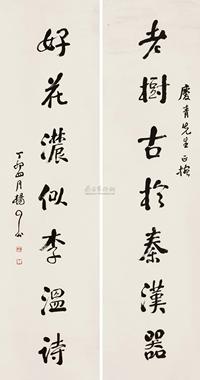 老樹古於秦漢器
慶青先生正撥
好花濃似李溫詩
丁卯四月楊